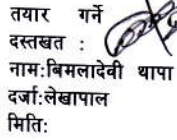 तयार गर्ने
दस्तखत :
नाम:बिमलादेवी थापा
दर्जा:लेखापाल
मिति: